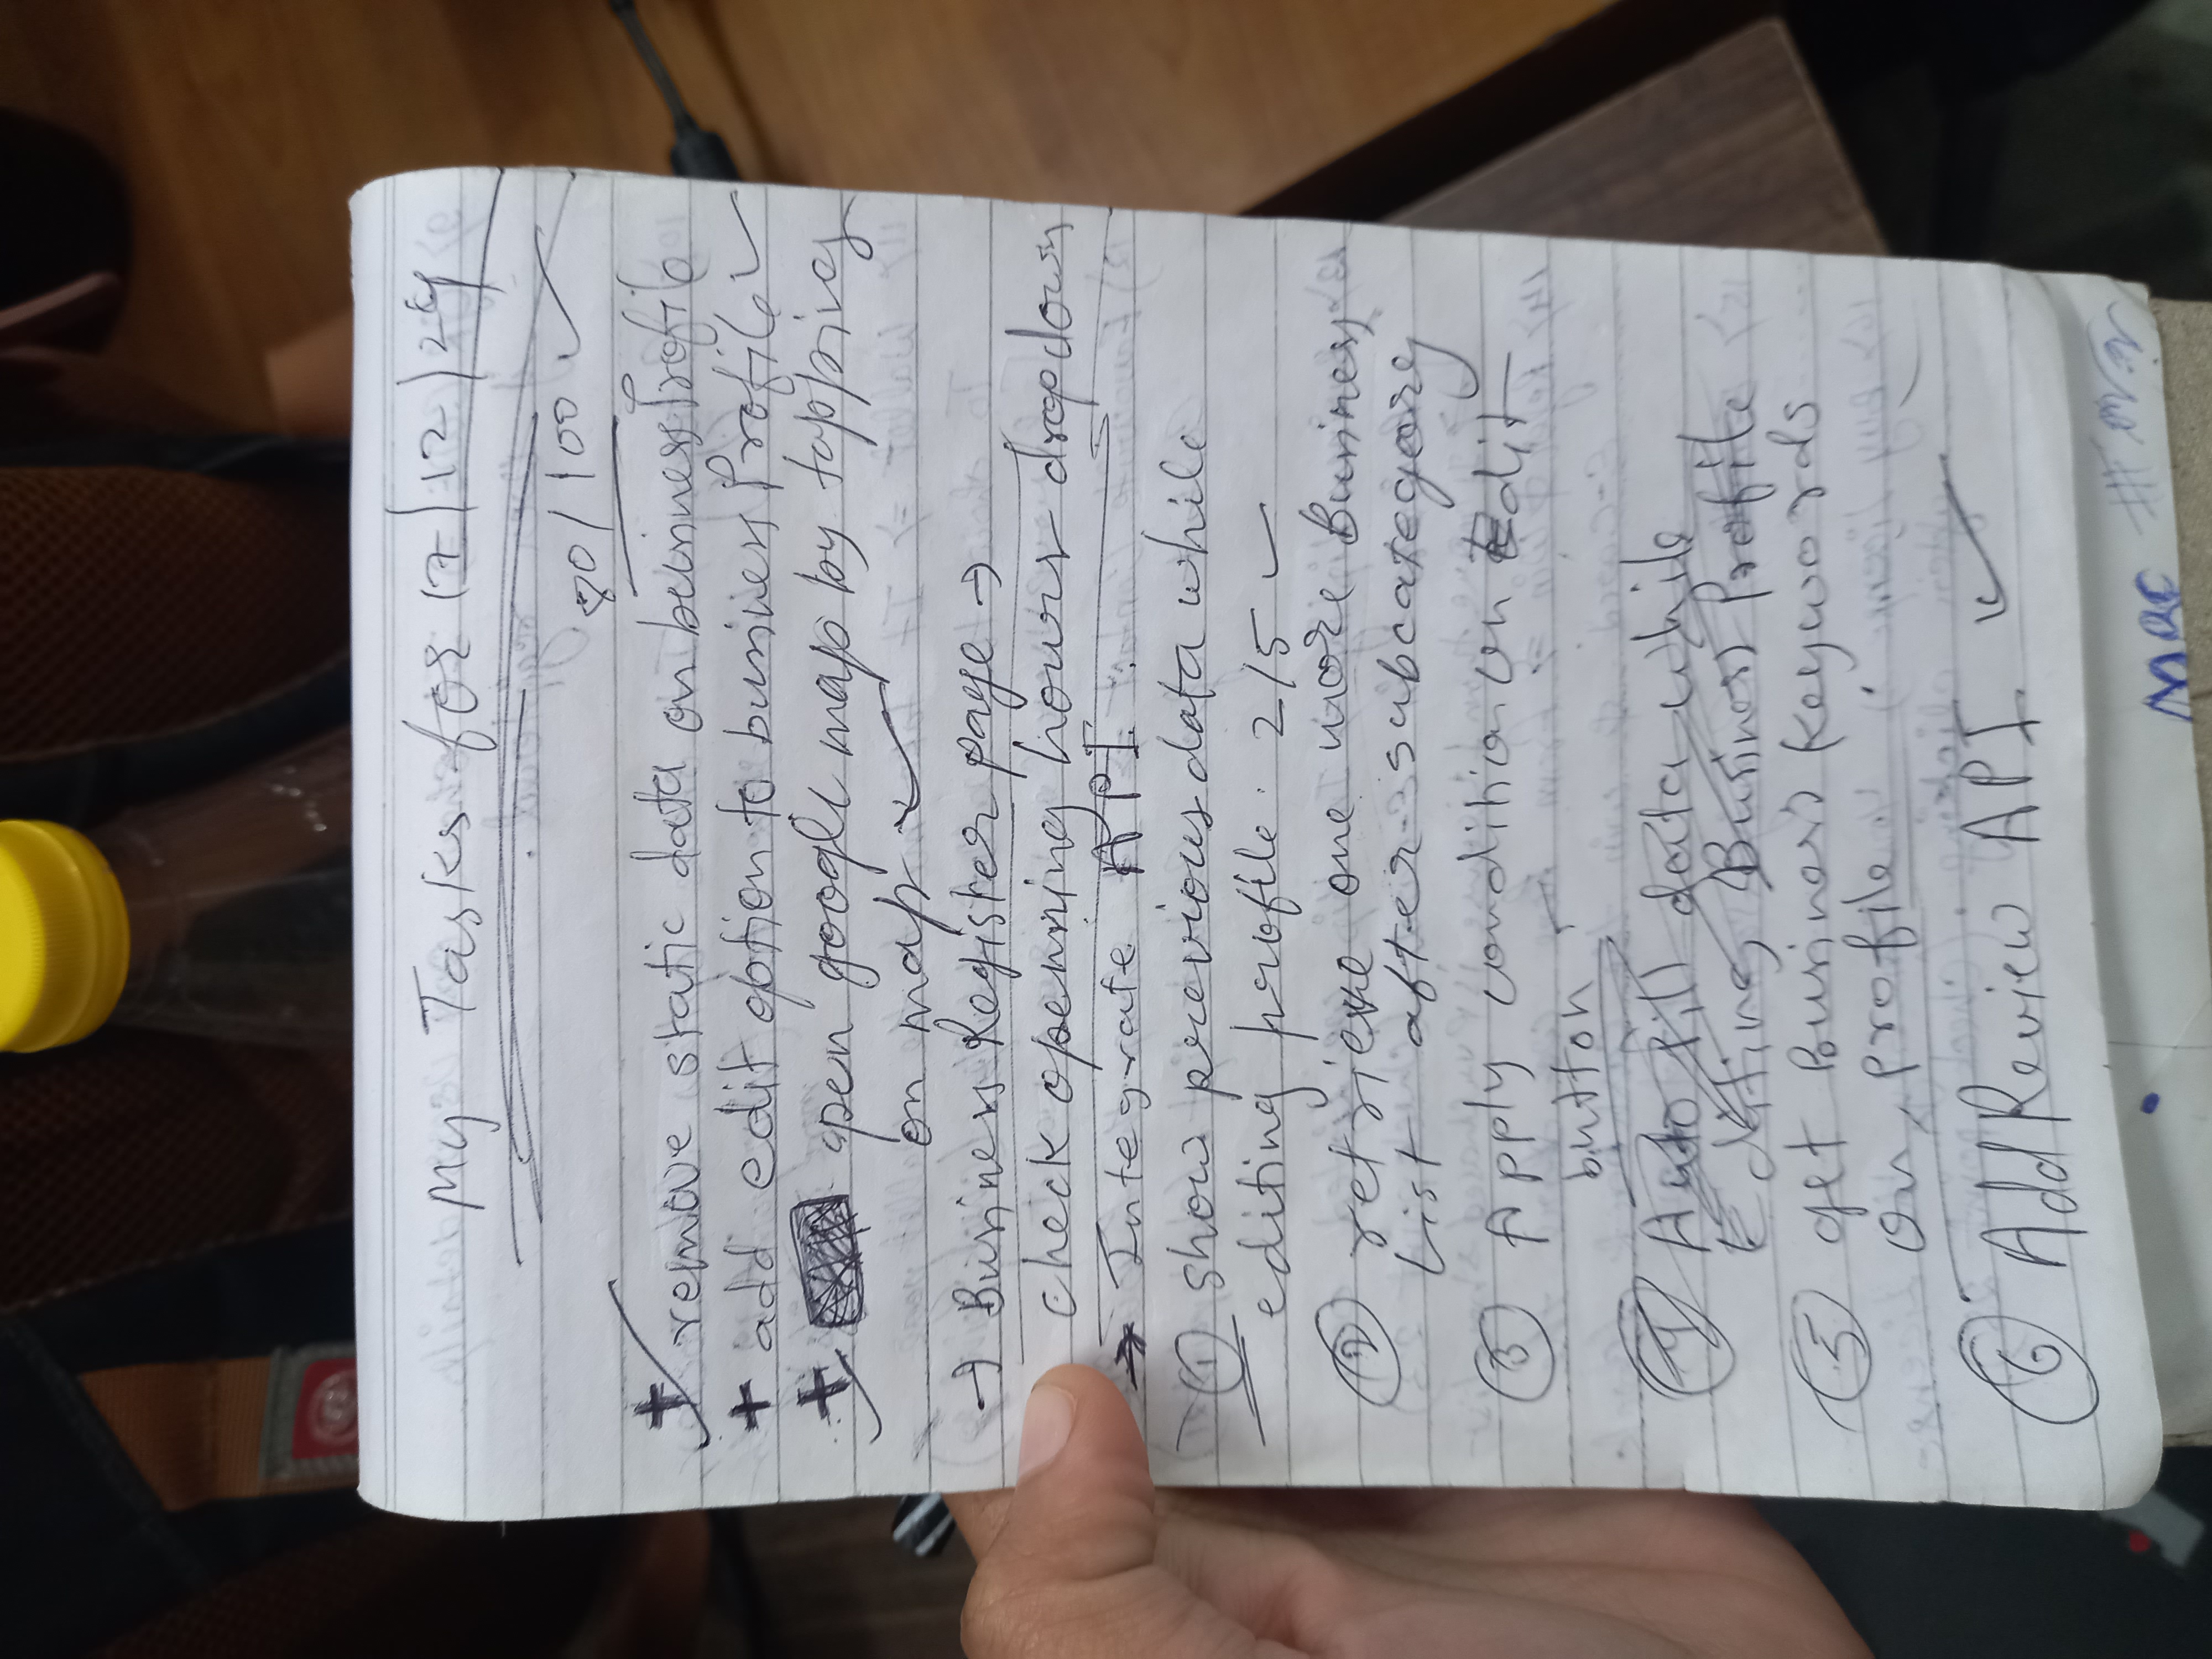 My Tasks for 17/12/24
80/100 ✓
+ remove static data on business Profile
+ add edit option to business Profile ✓
+ open google map by tapping
on map ✓
→ Business Register page →
check openning hours dropdown
→ Integrate API.
① show previous data while
editing profile. 2/5 ✓
② retrieve one more Business
List after subcategory
③ Apply condition on Edit
button
④ Auto fill data while
Editing Business Profile
⑤ get business keywords
on profile
⑥ Add Review API ✓